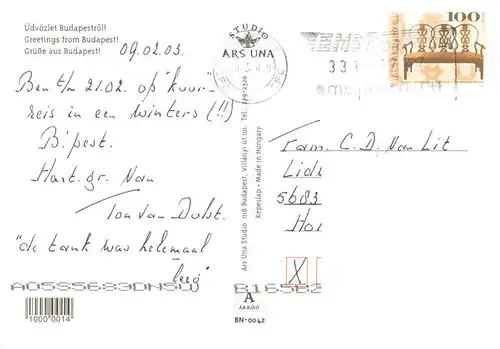 Üdvözlet Budapestről!
Greetings from Budapest!
Grüße aus Budapest!
09.02.03.
Ben t/m 21.02. op 'kuur'
reis in een winters (!!)
B'pest.
Hart. gr. Van
Ton van Dulst.
"de tank was helemaal
leeg"
STUDIO
ARS UNA
100
Fam. C. D. Van Lit
5683
Ars Una Studio 1118 Budapest, Villányi út 101. Tel.: 279-2320
Képeslap • Made in Hungary
X
A
ÁRKÓD
BN-0042
10000014